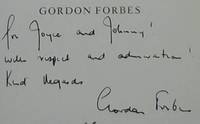 GORDON FORBES
for Joyce and Johnny!
with respect and admiration!
Kind Regards
Gordon Forbes